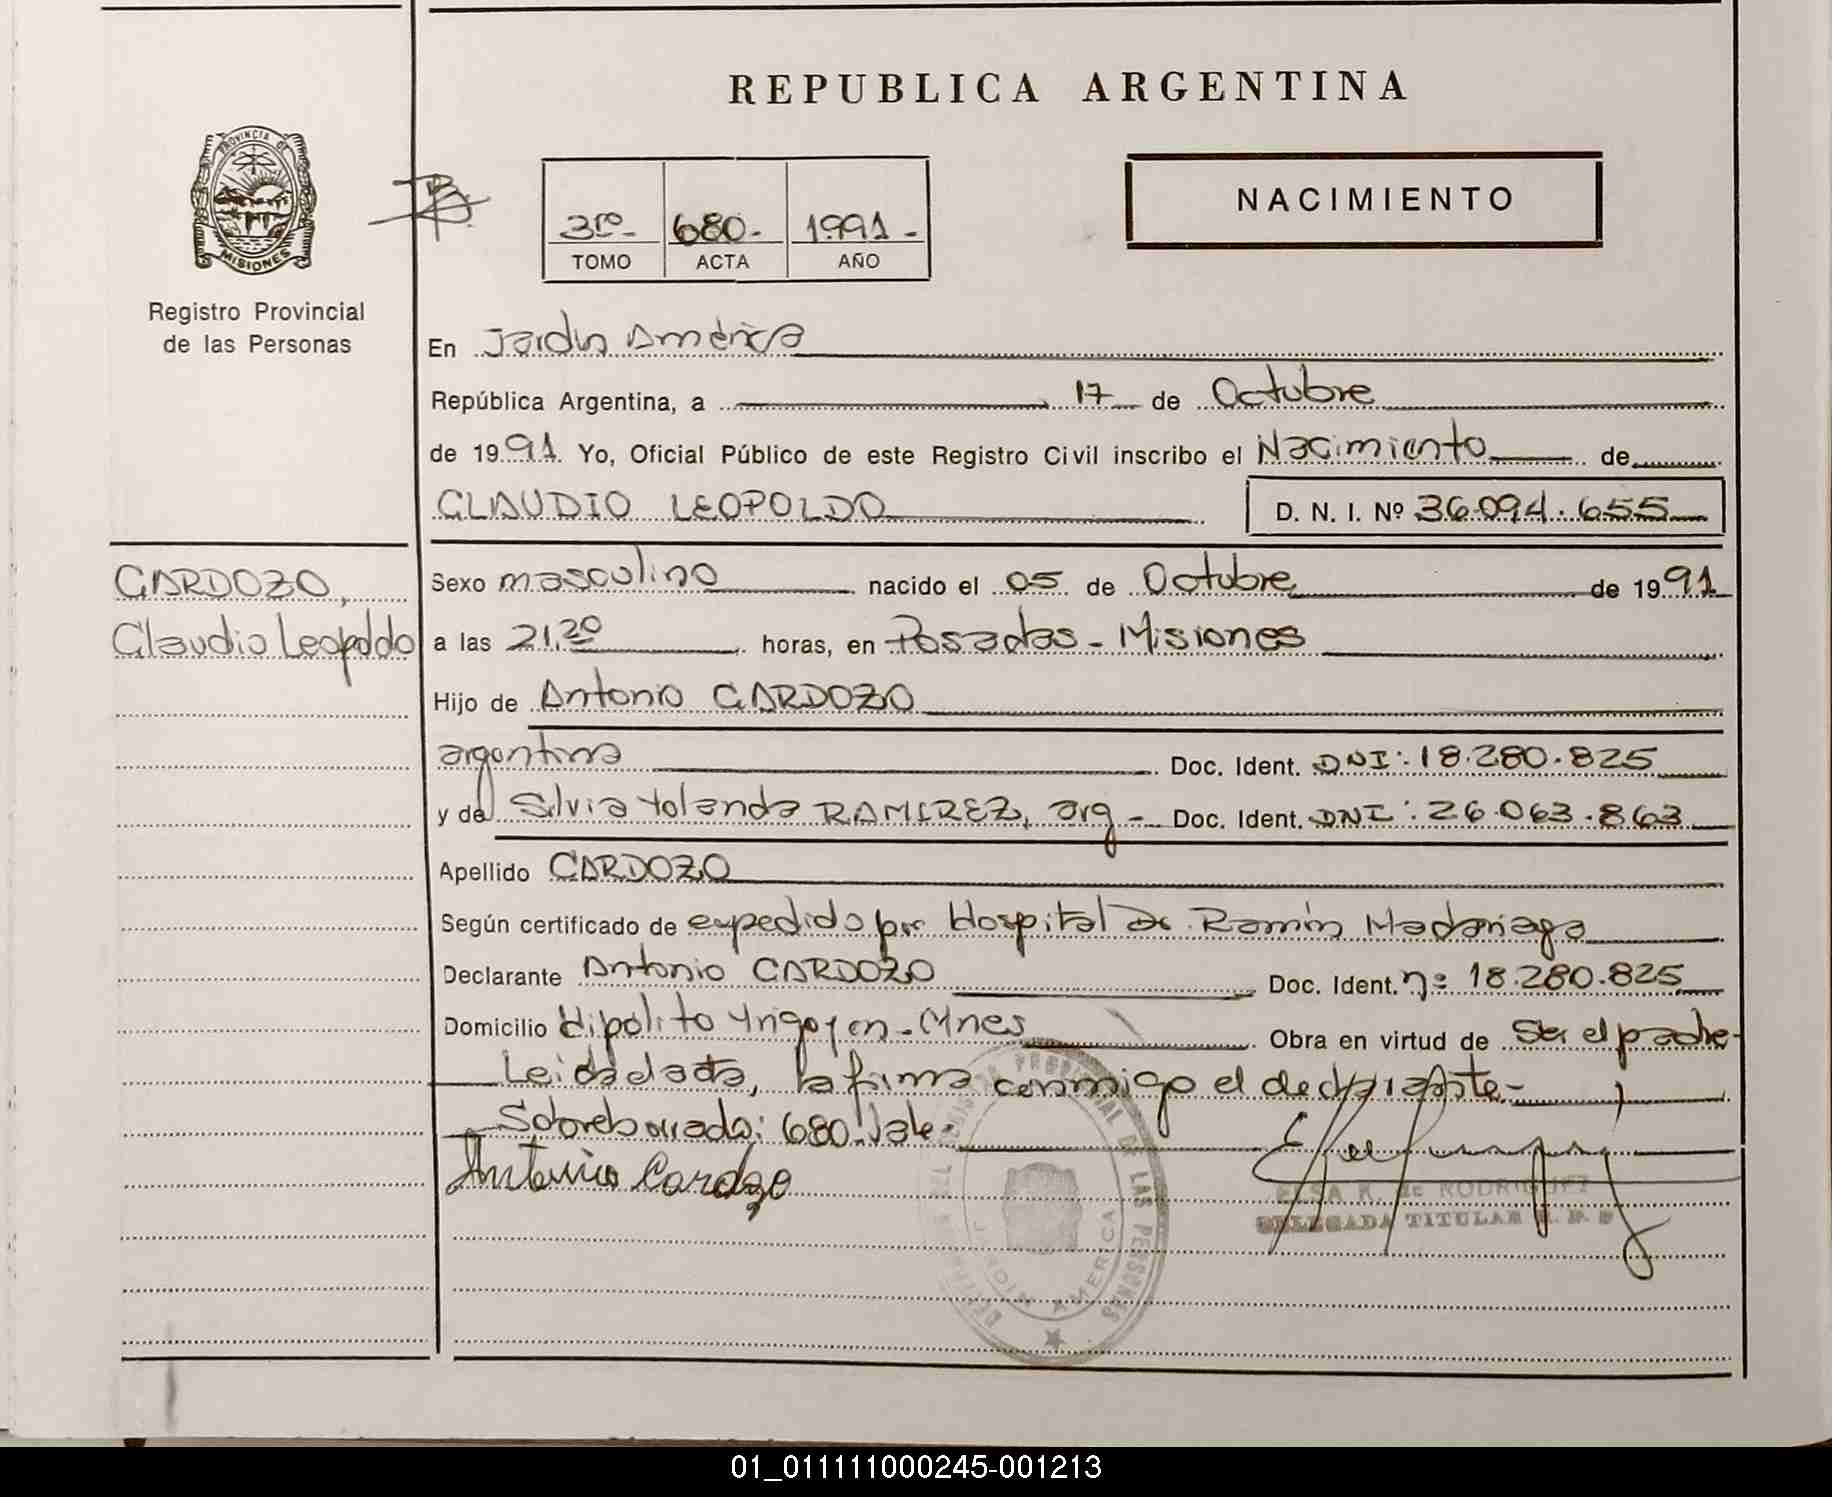 REPUBLICA ARGENTINA
PROVINCIA DE
MISIONES
Registro Provincial
de las Personas
3ro- 680.- 1991.-
TOMO ACTA AÑO
NACIMIENTO
En Jardín América
República Argentina, a 17 de Octubre
de 1991. Yo, Oficial Público de este Registro Civil inscribo el Nacimiento de
CLAUDIO LEOPOLDO D. N. I. Nº 36.094.655
CARDOZO,
Claudio Leopoldo
Sexo masculino nacido el 05 de Octubre de 1991
a las 21,20 horas, en Posadas - Misiones
Hijo de Antonio CARDOZO
argentina Doc. Ident. DNI: 18.280.825
y de Silvia Yolanda RAMIREZ, arg - Doc. Ident. DNI: 26.063.863
Apellido CARDOZO
Según certificado de expedido por Hospital Dr. Ramón Madariaga
Declarante Antonio CARDOZO Doc. Ident. nº 18.280.825
Domicilio Hipólito Yrigoyen - Mnes Obra en virtud de Ser el padre-
Leida el acta, la firma conmigo el declarante-
Sobreborrado: 680.Vale.-
Antonio Cardozo
ELSA K. de RODRIGUEZ
DELEGADA TITULAR R. P. P.
REGISTRO PROVINCIAL DE LAS PERSONAS
JARDIN AMERICA
01_011111000245-001213